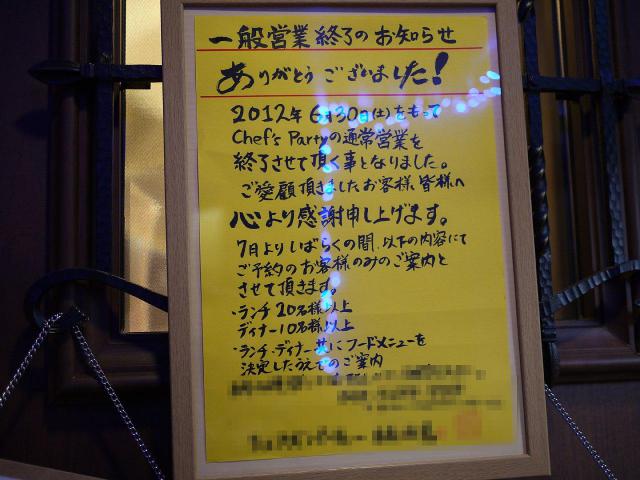 一般営業終了のお知らせ
ありがとうございました!
2012年6月30日(土)をもって
Chef's Partyの通常営業を
終了させて頂く事となりました。
ご愛顧頂きましたお客様、皆様へ
心より感謝申し上げます。
7月よりしばらくの間、以下の内容にて
ご予約のお客様のみのご案内と
させて頂きます。
・ランチ 20名様以上
ディナー10名様以上
・ランチ・ディナー共にフードメニューを
決定したうえでのご案内